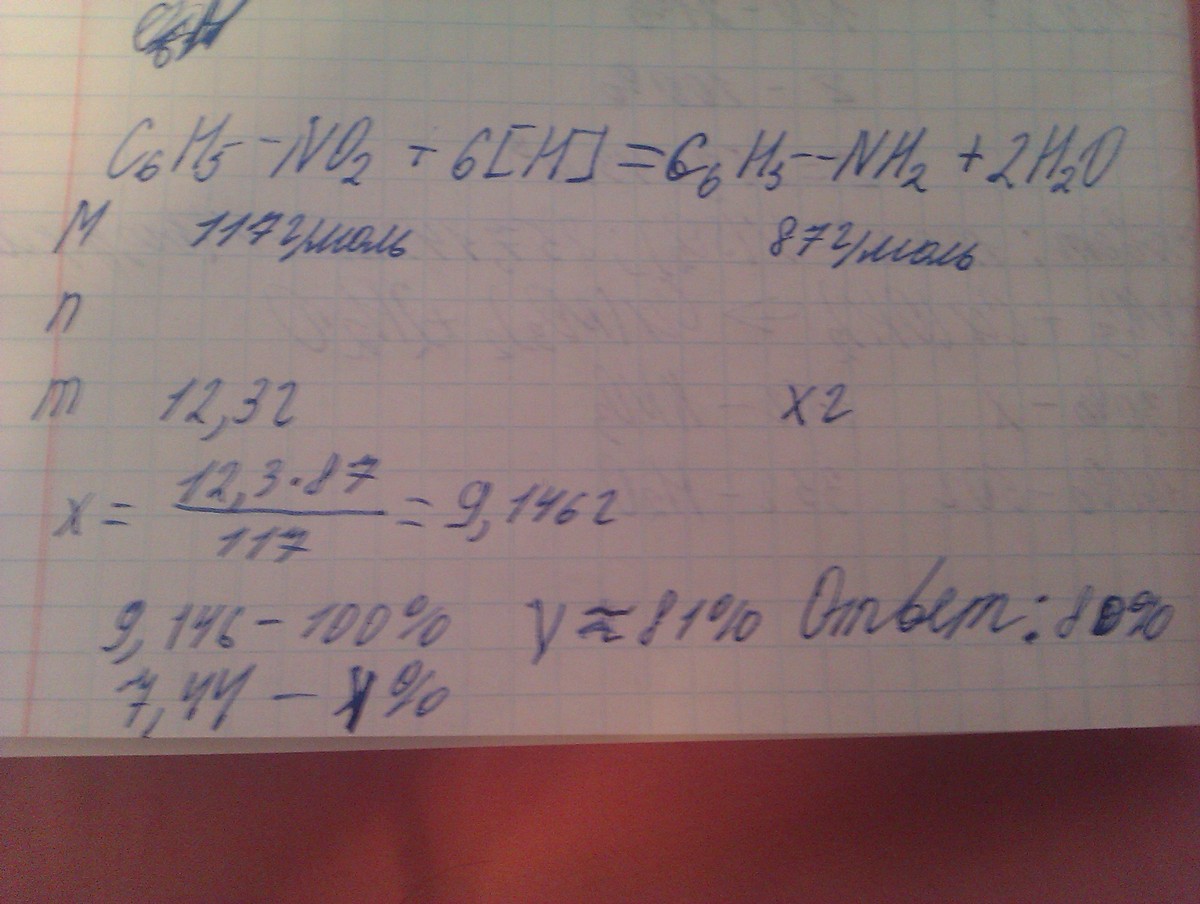 C₆H₅-NO₂ + 6[H] = C₆H₅-NH₂ + 2H₂O
M 117г/моль 87г/моль
n
m 12,3г x г
x = 12,3·87/117 = 9,146г
9,146 - 100% y ≈ 81% Ответ: 80%
7,44 - y%